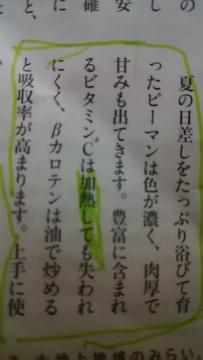 の
安
し
に確
と、
夏の日差しをたっぷり浴びて育
ったピーマンは色が濃く、肉厚で
甘みも出てきます。豊富に含まれ
るビタミンCは加熱しても失われ
にくく、βカロテンは油で炒める
と吸収率が高まります。上手に使